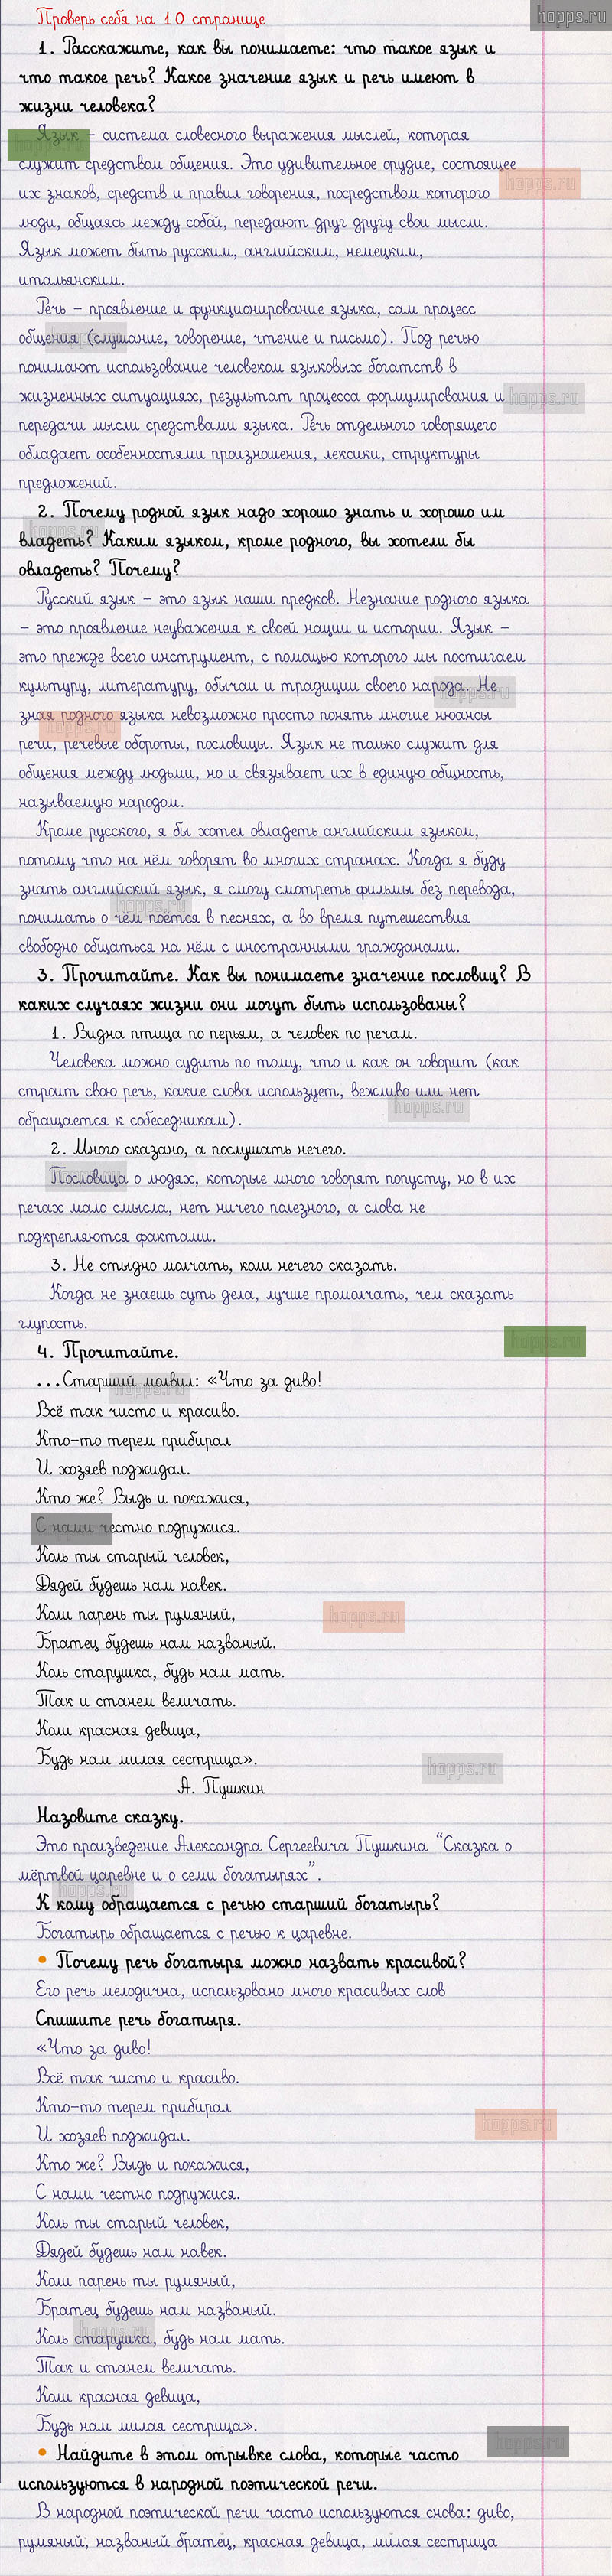 hopps.ru
Проверь себя на 10 странице
1. Расскажите, как вы понимаете: что такое язык и
что такое речь? Какое значение язык и речь имеют в
жизни человека?
Язык – система словесного выражения мыслей, которая
служит средством общения. Это удивительное орудие, состоящее
их знаков, средств и правил говорения, посредством которого
люди, общаясь между собой, передают друг другу свои мысли.
Язык может быть русским, английским, немецким,
итальянским.
Речь – проявление и функционирование языка, сам процесс
общения (слушание, говорение, чтение и письмо). Под речью
понимают использование человеком языковых богатств в
жизненных ситуациях, результат процесса формулирования и
передачи мысли средствами языка. Речь отдельного говорящего
обладает особенностями произношения, лексики, структуры
предложений.
2. Почему родной язык надо хорошо знать и хорошо им
владеть? Каким языком, кроме родного, вы хотели бы
овладеть? Почему?
Русский язык – это язык наши предков. Незнание родного языка
– это проявление неуважения к своей нации и истории. Язык –
это прежде всего инструмент, с помощью которого мы постигаем
культуру, литературу, обычаи и традиции своего народа. Не
зная родного языка невозможно просто понять многие нюансы
речи, речевые обороты, пословицы. Язык не только служит для
общения между людьми, но и связывает их в единую общность,
называемую народом.
Кроме русского, я бы хотел овладеть английским языком,
потому что на нём говорят во многих странах. Когда я буду
знать английский язык, я смогу смотреть фильмы без перевода,
понимать о чём поётся в песнях, а во время путешествия
свободно общаться на нём с иностранными гражданами.
3. Прочитайте. Как вы понимаете значение пословиц? В
каких случаях жизни они могут быть использованы?
1. Видна птица по перьям, а человек по речам.
Человека можно судить по тому, что и как он говорит (как
строит свою речь, какие слова использует, вежливо или нет
обращается к собеседникам).
2. Много сказано, а послушать нечего.
Пословица о людях, которые много говорят попусту, но в их
речах мало смысла, нет ничего полезного, а слова не
подкрепляются фактами.
3. Не стыдно молчать, коли нечего сказать.
Когда не знаешь суть дела, лучше промолчать, чем сказать
глупость.
4. Прочитайте.
...Старший молвил: «Что за диво!
Всё так чисто и красиво.
Кто-то терем прибирал
И хозяев поджидал.
Кто же? Выдь и покажися,
С нами честно подружися.
Коль ты старый человек,
Дядей будешь нам навек.
Коли парень ты румяный,
Братец будешь нам названый.
Коль старушка, будь нам мать.
Так и станем величать.
Коли красная девица,
Будь нам милая сестрица».
А. Пушкин
Назовите сказку.
Это произведение Александра Сергеевича Пушкина “Сказка о
мёртвой царевне и о семи богатырях”.
К кому обращается с речью старший богатырь?
Богатырь обращается с речью к царевне.
• Почему речь богатыря можно назвать красивой?
Его речь мелодична, использовано много красивых слов
Спишите речь богатыря.
«Что за диво!
Всё так чисто и красиво.
Кто-то терем прибирал
И хозяев поджидал.
Кто же? Выдь и покажися,
С нами честно подружися.
Коль ты старый человек,
Дядей будешь нам навек.
Коли парень ты румяный,
Братец будешь нам названый.
Коль старушка, будь нам мать.
Так и станем величать.
Коли красная девица,
Будь нам милая сестрица».
• Найдите в этом отрывке слова, которые часто
используются в народной поэтической речи.
В народной поэтической речи часто используются снова: диво,
румяный, названый братец, красная девица, милая сестрица